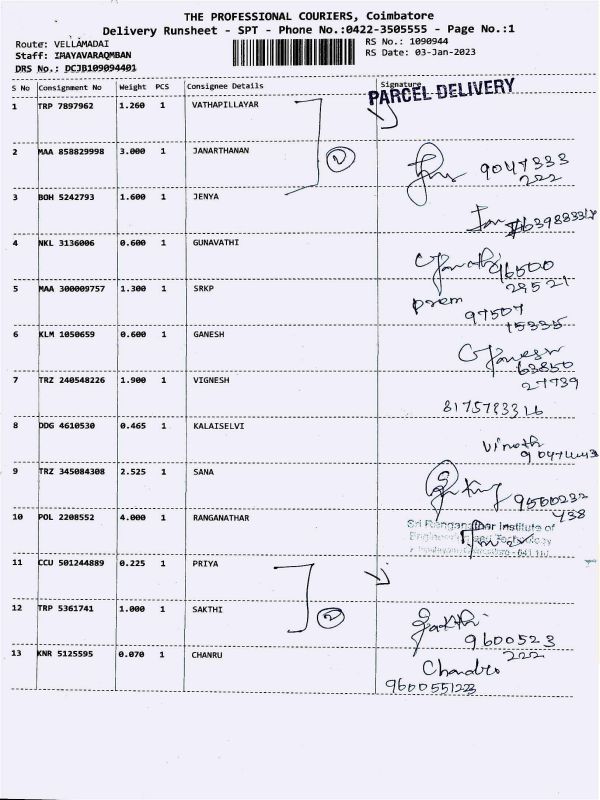 THE PROFESSIONAL COURIERS, Coimbatore
Delivery Runsheet - SPT - Phone No.:0422-3505555 - Page No.:1
Route: VELLAMADAI
RS No.: 1090944
Staff: IHAYAVARAQMBAN
RS Date: 03-Jan-2023
DRS No.: DCJB109094401
S No Consignment No Weight PCS Consignee Details Signature
PARCEL DELIVERY
1 TRP 7897962 1.260 1 VATHAPILLAYAR
2 MAA 858829998 3.000 1 JANARTHANAN
2
9047333
222
3 BOH 5242793 1.600 1 JENYA
4 NKL 3136006 0.600 1 GUNAVATHI
96500
29521
5 MAA 300009757 1.300 1 SRKP
prem
97507
15335
6 KLM 1050659 0.600 1 GANESH
Ganesh
63850
27739
7 TRZ 240548226 1.900 1 VIGNESH
8 DDG 4610530 0.465 1 KALAISELVI
Vinoth
9 TRZ 345084308 2.525 1 SANA
9500232
438
10 POL 2208552 4.000 1 RANGANATHAR
Sri Ranganathar Institute of
Engineering and Technology
11 CCU 501244889 0.225 1 PRIYA
12 TRP 5361741 1.000 1 SAKTHI
2
Sakthi
9600523
222
13 KNR 5125595 0.070 1 CHANRU
Chandro
9600551223